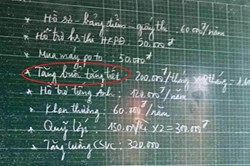 * Hồ sơ - bảng điểm - giấy thi : 60.000đ/năm
* Hỗ trợ hs thi HKPĐ : 50.000đ
* Mua máy poto : 50.000đ
* Tăng buổi trái tiết : 200.000đ/tháng
* Hỗ trợ tiếng Anh : 120.000đ/năm
* Khen thưởng : 60.000đ/năm
* Quỹ lớp : 150.000/kì x2 = 300.000đ
* Tăng cường CSVC : 320.000